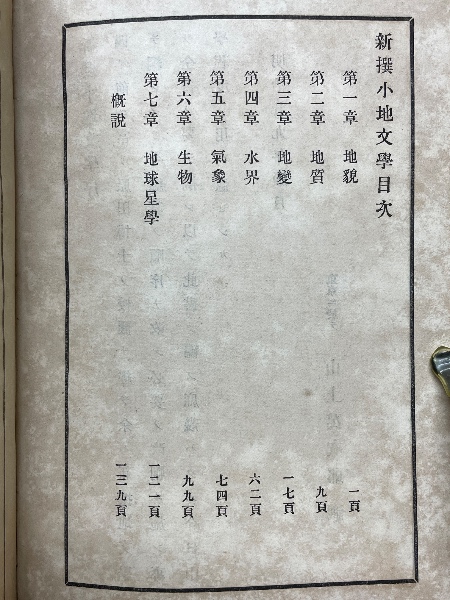 新撰小地文學目次
第一章 地貌 一頁
第二章 地質 九頁
第三章 地變 一七頁
第四章 水界 六二頁
第五章 氣象 七四頁
第六章 生物 九九頁
第七章 地球星學 一二一頁
概說 一三九頁